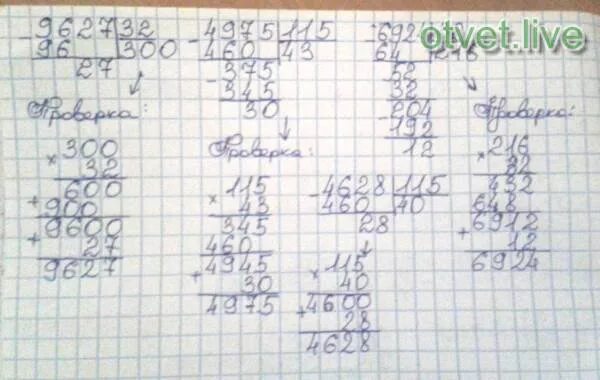 9627 32
96 300
27
Проверка:
300
× 32
600
+ 900
9600
+ 27
9627
- 4975 115
460 43
- 375
345
30
Проверка:
115
× 43
345
460
4945
+ 30
4975
- 4628 115
460 40
28
115
× 40
4600
+ 28
4628
- 6924
64 216
52
32
204
- 192
12
Проверка:
216
× 32
432
648
6912
+ 12
6924
otvet.live